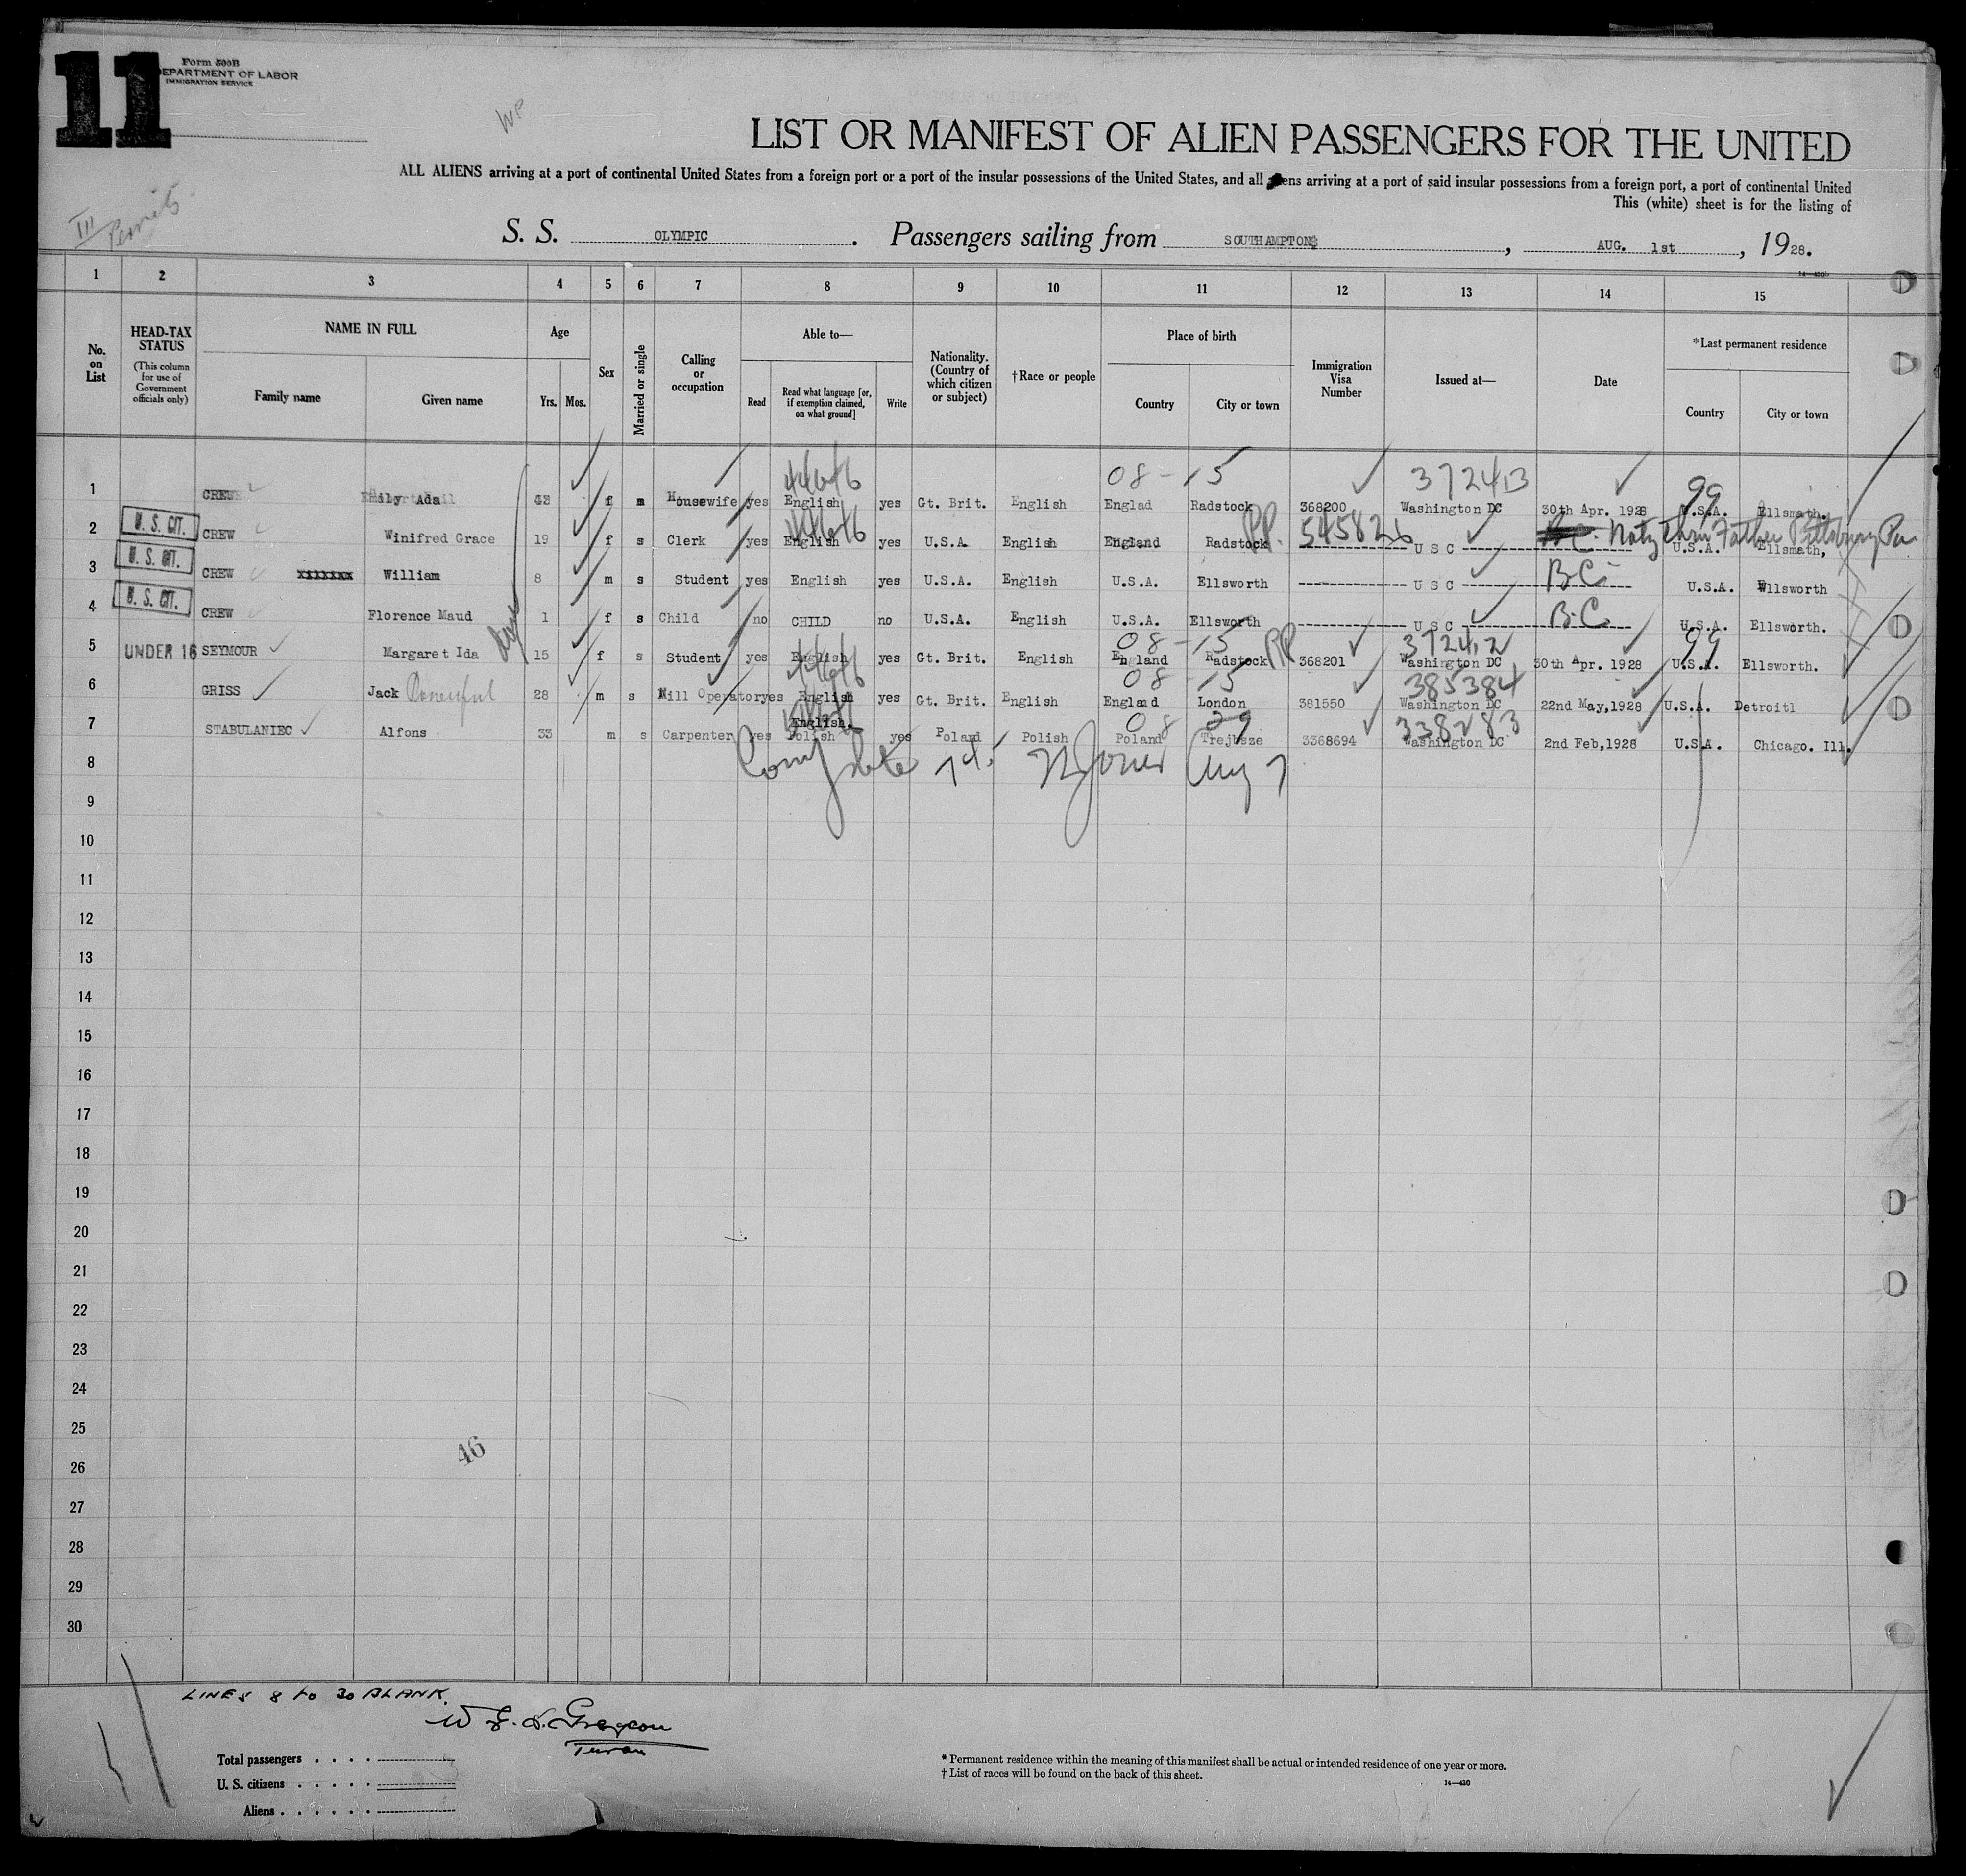 11
Form 500B
DEPARTMENT OF LABOR
IMMIGRATION SERVICE
WP
LIST OR MANIFEST OF ALIEN PASSENGERS FOR THE UNITED
ALL ALIENS arriving at a port of continental United States from a foreign port or a port of the insular possessions of the United States, and all ens arriving at a port of said insular possessions from a foreign port, a port of continental United
This (white) sheet is for the listing of
III
Permits
S. S. OLYMPIC. Passengers sailing from SOUTHAMPTON, AUG. 1st, 1928.
1 2 3 4 5 6 7 8 9 10 11 12 13 14 15
No. on List
HEAD-TAX STATUS (This column for use of Government officials only)
NAME IN FULL
Family name Given name
Age
Yrs. Mos.
Sex
Married or single
Calling or occupation
Able to—
Read Read what language [or, if exemption claimed, on what ground] Write
Nationality. (Country of which citizen or subject)
†Race or people
Place of birth
Country City or town
Immigration Visa Number
Issued at—
Date
*Last permanent residence
Country City or town
08-15 99
1 CREW Emily Ada 43 f m Housewife yes English yes Gt. Brit. English Englad Radstock 368200 Washington DC 30th Apr. 1928 U.S.A. Ellsmath.
PP. 545826 Natz thru Father Pittsburg Pa
2 U. S. CIT. CREW Winifred Grace 19 f s Clerk yes English yes U.S.A. English England Radstock U S C U.S.A. Ellsmath,
3 U. S. CIT. CREW xxxxxxx William 8 m s Student yes English yes U.S.A. English U.S.A. Ellsworth U S C BC U.S.A. Ellsworth
4 U. S. CIT. CREW Florence Maud 1 f s Child no CHILD no U.S.A. English U.S.A. Ellsworth U S C B.C. U.S.A. Ellsworth.
08-15 PP 372412 99
5 UNDER 16 SEYMOUR Margaret Ida 15 f s Student yes English yes Gt. Brit. English England Radstock 368201 Washington DC 30th Apr. 1928 U.S.A. Ellsworth.
08-15 385384
6 GRISS Jack 28 m s Mill Operator yes English yes Gt. Brit. English England London 381550 Washington DC 22nd May,1928 U.S.A. Detroitl
English. 08 29 338283
7 STABULANIEC Alfons 33 m s Carpenter yes Polish yes Poland Polish Poland Trejbsze 3368694 Washington DC 2nd Feb,1928 U.S.A. Chicago. Ill.
8
9
10
11
12
13
14
15
16
17
18
19
20
21
22
23
24
25
46
26
27
28
29
30
LINES 8 to 30 BLANK.
Total passengers . . . .
U. S. citizens . . . . .
Aliens . . . . . .
* Permanent residence within the meaning of this manifest shall be actual or intended residence of one year or more.
† List of races will be found on the back of this sheet.
14—430